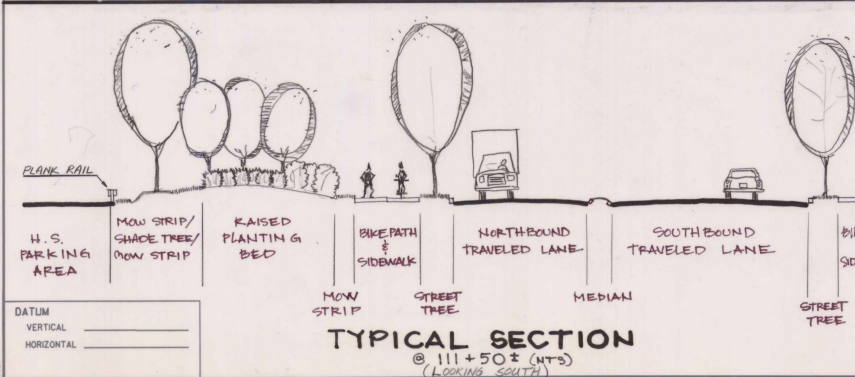 PLANK RAIL
H.S.
PARKING
AREA
MOW STRIP/
SHADE TREE/
MOW STRIP
RAISED
PLANTING
BED
MOW
STRIP
BIKEPATH
&
SIDEWALK
STREET
TREE
NORTHBOUND
TRAVELED LANE
MEDIAN
SOUTHBOUND
TRAVELED LANE
STREET
TREE
BI
SID
DATUM
VERTICAL
HORIZONTAL
TYPICAL SECTION
@ 111+50± (NTS)
(LOOKING SOUTH)